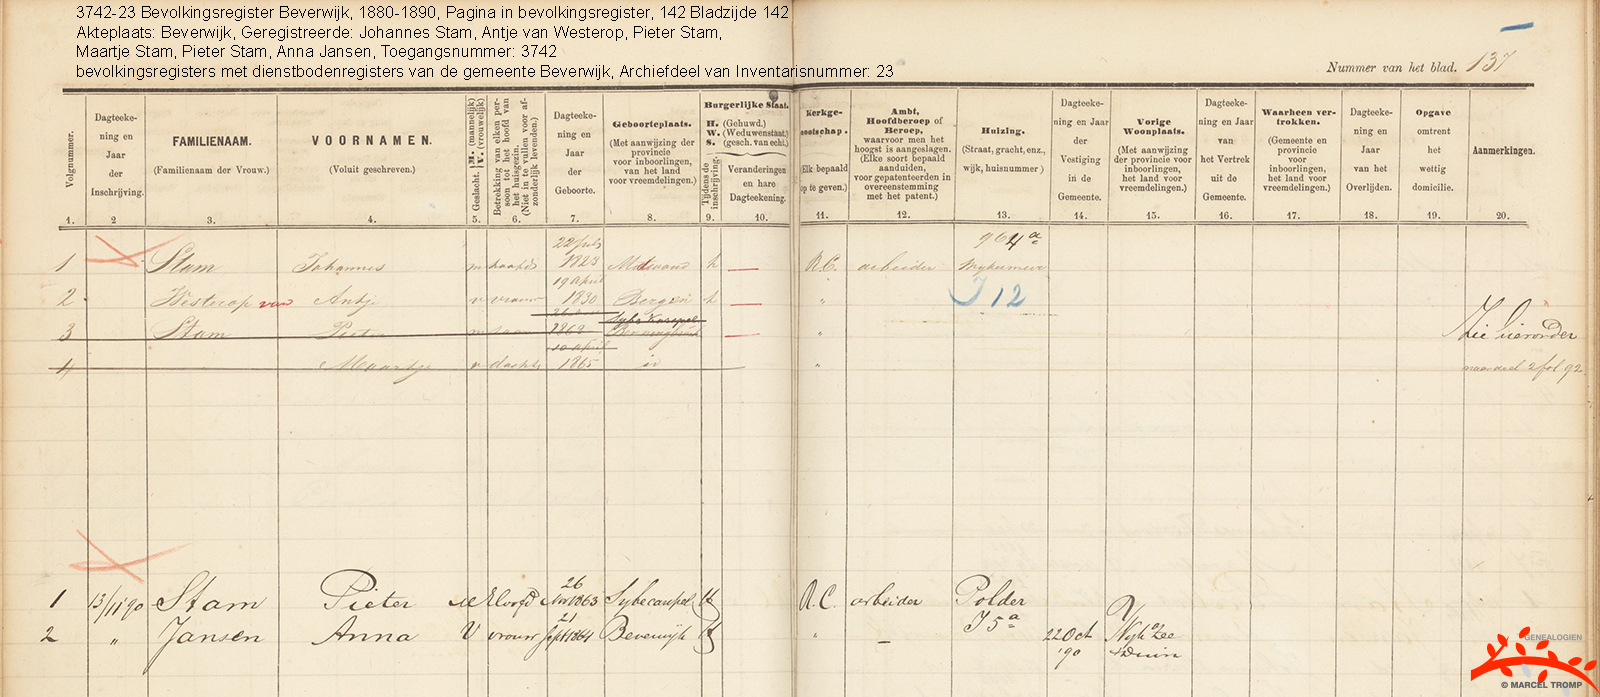 3742-23 Bevolkingsregister Beverwijk, 1880-1890, Pagina in bevolkingsregister, 142 Bladzijde 142
Akteplaats: Beverwijk, Geregistreerde: Johannes Stam, Antje van Westerop, Pieter Stam,
Maartje Stam, Pieter Stam, Anna Jansen, Toegangsnummer: 3742
bevolkingsregisters met dienstbodenregisters van de gemeente Beverwijk, Archiefdeel van Inventarisnummer: 23
Nummer van het blad. 137
Volgnummer.
1.
Dagteeke-
ning en
Jaar
der
Inschrijving.
2
FAMILIENAAM.
(Familienaam der Vrouw.)
3.
VOORNAMEN.
(Voluit geschreven.)
4.
Geslacht. M. (mannelijk) V. (vrouwelijk)
5.
Betrekking van elken per-
soon tot het hoofd van
het huisgezin.
(Niet in te vullen voor af-
zonderlijk levenden.)
6.
Dagteeke-
ning en
Jaar
der
Geboorte.
7.
Geboorteplaats.
(Met aanwijzing der
provincie
voor inboorlingen,
van het land
voor vreemdelingen.)
8.
Burgerlijke Staat.
H. (Gehuwd.)
W. (Weduwenstaat.)
S. (gesch. van echt.)
Tijdens de
inschrijving.
9.
Veranderingen
en hare
Dagteekening.
10.
Kerkge-
nootschap.
(Elk bepaald
op te geven.)
11.
Ambt,
Hoofdberoep of
Beroep,
waarvoor men het
hoogst is aangeslagen.
(Elke soort bepaald
aanduiden,
voor gepatenteerden in
overeenstemming
met het patent.)
12.
Huizing.
(Straat, gracht, enz.,
wijk, huisnummer)
13.
Dagteeke-
ning en Jaar
der
Vestiging
in de
Gemeente.
14.
Vorige
Woonplaats.
(Met aanwijzing
der provincie voor
inboorlingen,
het land voor
vreemdelingen.)
15.
Dagteeke-
ning en Jaar
van
het Vertrek
uit de
Gemeente.
16.
Waarheen ver-
trokken.
(Gemeente en
provincie
voor
inboorlingen,
het land voor
vreemdelingen.)
17.
Dagteeke-
ning en
Jaar
van het
Overlijden.
18.
Opgave
omtrent
het
wettig
domicilie.
19.
Aanmerkingen.
20.
1 Stam Johannes m hoofd 1823 h R.C. arbeider
2 Westerop van Antje v vrouw 19 April 1830 Bergen h " J 12
3 Stam Pieter " Zie hieronder
4 Maartje v dochter 10 April 1865 id " naar deel 2 fol 92
1 13/11 '90 Stam Pieter M Hoofd 26 Nov 1863 H R.C. arbeider Polder
J 5a
2 " Jansen Anna V vrouw 21 Sept 1864 Beverwijk H " — 22 Oct '90 Wijk a/Zee
&Duin
GENEALOGIEN
© MARCEL TROMP